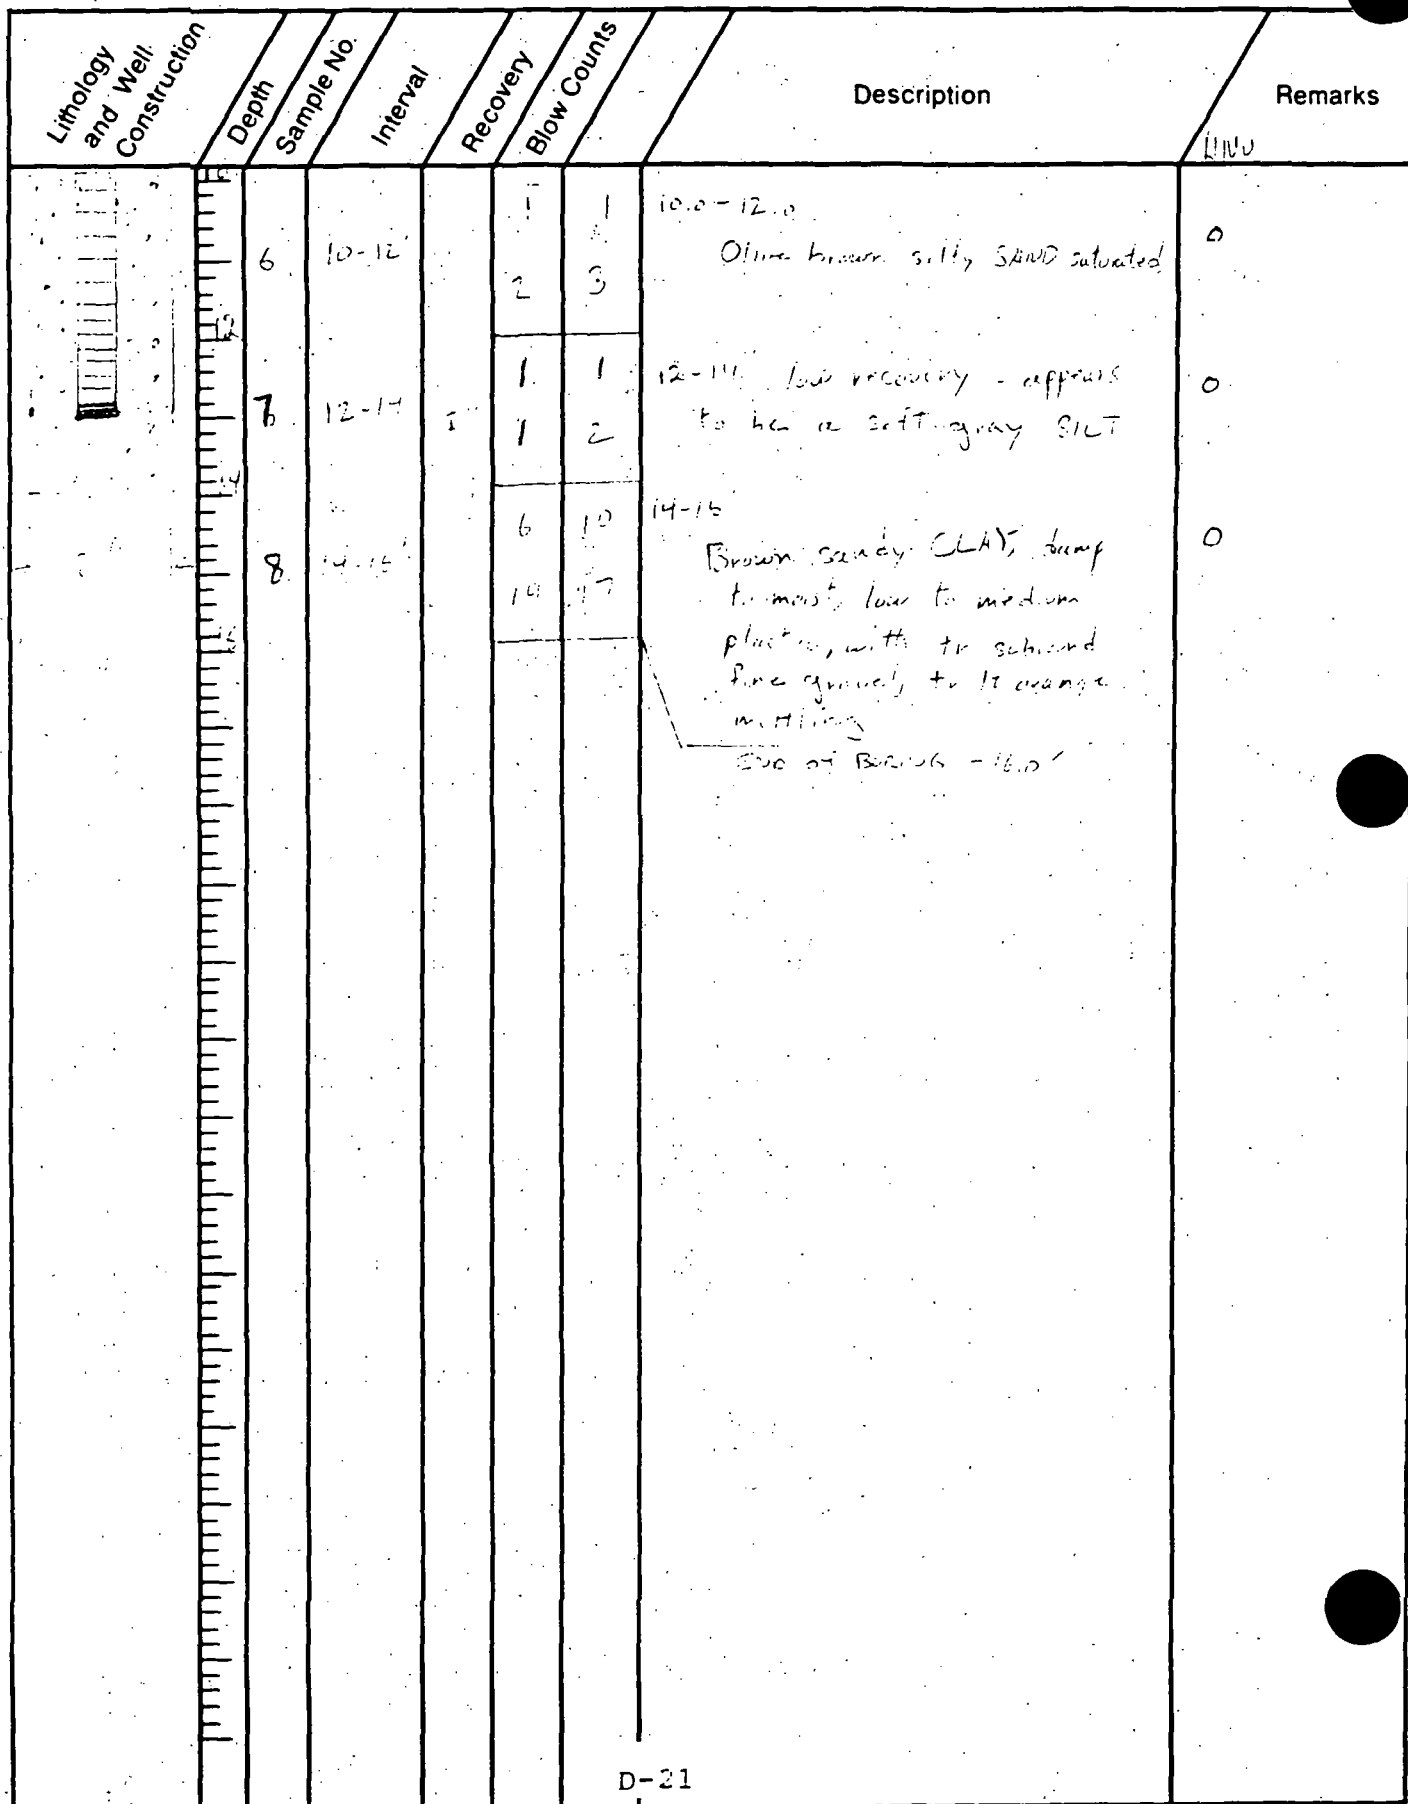 Lithology
and Well
Construction
Depth
Sample No.
Interval
Recovery
Blow Counts
Description
Remarks
HNU
10
1 1
10.0-12.0
6 10-12'
Olive brown silty SAND saturated
0
2 3
12
1 1
12-14' low recovery - appears
0
7 12-14 1"
1 2
to be a soft gray SILT
14
6 10
14-16
Brown sandy CLAY, damp
0
8 14-16'
10 17
to moist, low to medium
16
plastic, with tr subrnd
fine gravel, tr lt orange
mottling
END OF BORING - 16.0'
D-21